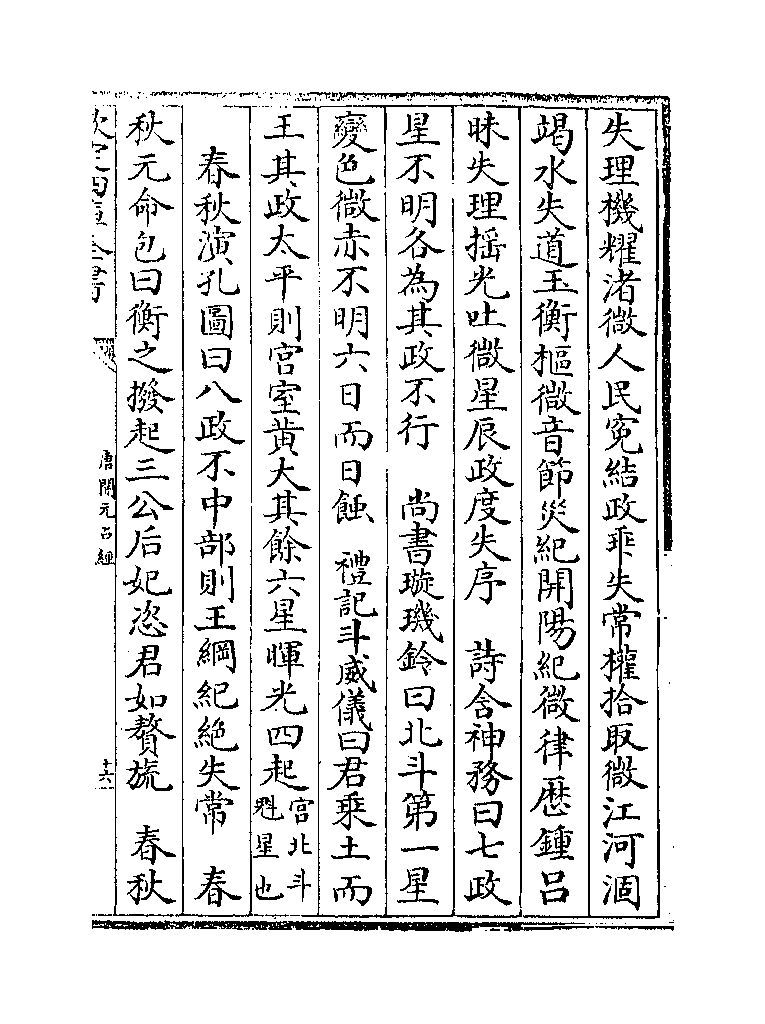 失理機耀渚微人民寃結政乖失常權拾取微江河涸
竭水失道玉衡樞微音節災紀開陽紀微律厯鍾吕
昧失理摇光吐微星辰政度失序　詩含神務曰七政
星不明各為其政不行　尚書璇璣鈴曰北斗第一星
變色微赤不明六日而日蝕　禮記斗威儀曰君乗土而
王其政太平則宫室黄大其餘六星暉光四起宫北斗魁星也
春秋演孔圖曰八政不中部則王綱紀絶失常　春
秋元命包曰衡之撥起三公后妃恣君如贅旒　春秋
欽定四庫全書
唐開元占經
十六